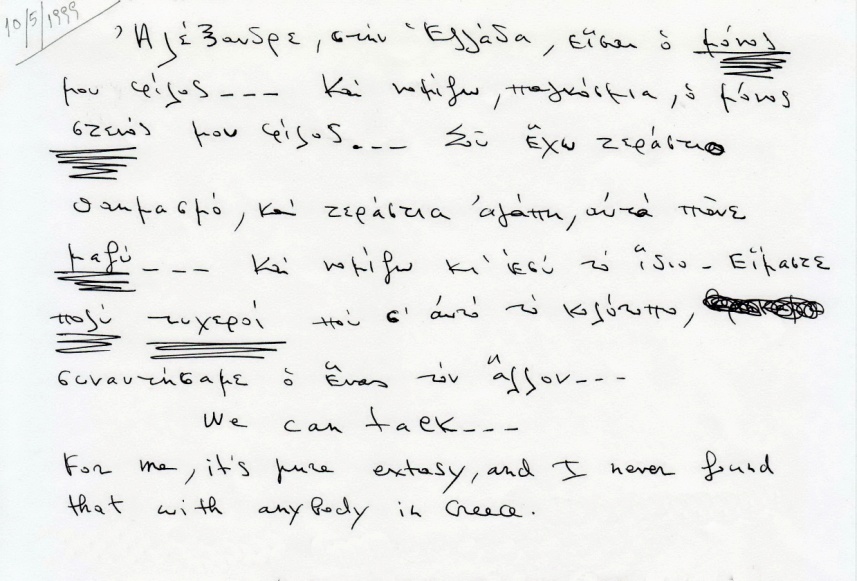 10/5/1999
Ἀλέξανδρε, στὴν Ἑλλάδα, εἶσαι ὁ μόνος
μου φίλος--- Καὶ νομίζω, παγκόσμια, ὁ μόνος
στενός μου φίλος.--- Σοῦ ἔχω τεράστιο
θαυμασμό, καὶ τεράστια ἀγάπη, αὐτὰ πᾶνε
μαζύ--- Καὶ νομίζω κι' ἐσύ τὸ ἴδιο - Εἴμαστε
πολύ τυχεροί ποὺ σ' αὐτὸ τὸ
συναντήσαμε ὁ ἕνας τὸν ἄλλον---
We can talk---
For me, it's pure extasy, and I never found
that with anybody in Greece.